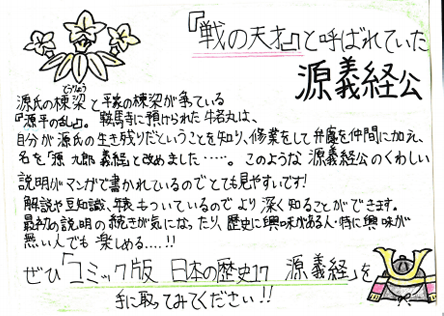 『戦の天才』と呼ばれていた
源義経公
とうりょう
源氏の棟梁と平家の棟梁が争っている
『源平の乱』。鞍馬寺に預けられた牛若丸は、
自分が源氏の生き残りだということを知り、修業をして弁慶を仲間に加え、
名を「源 九郎 義経」と改めました……。このような 源義経公のくわしい
説明がマンガで書かれているのでとても見やすいです!
解説や豆知識、年表もついているので より 深く知ることができます。
最初の説明の 続きが気になったり、歴史に興味がある人・特に興味が
無い人でも 楽しめる……!!
ぜひ「コミック版 日本の歴史17 源義経」を
手に取ってみてください!!